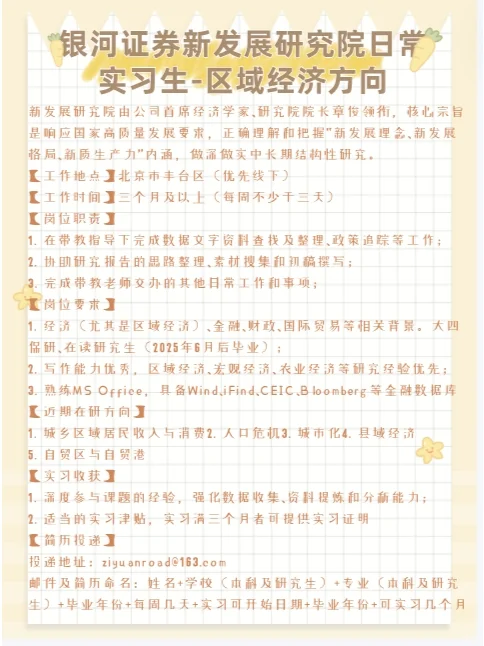 银河证券新发展研究院日常
实习生-区域经济方向
新发展研究院由公司首席经济学家、研究院院长章俊领衔，核心宗旨
是响应国家高质量发展要求，正确理解和把握"新发展理念、新发展
格局、新质生产力"内涵，做深做实中长期结构性研究。
【工作地点】北京市丰台区（优先线下）
【工作时间】三个月及以上（每周不少于三天）
【岗位职责】
1. 在带教指导下完成数据文字资料查找及整理、政策追踪等工作；
2. 协助研究报告的思路整理、素材搜集和初稿撰写；
3. 完成带教老师交办的其他日常工作和事项；
【岗位要求】
1. 经济（尤其是区域经济）、金融、财政、国际贸易等相关背景。大四
保研、在读研究生（2025年6月后毕业）；
2. 写作能力优秀，区域经济、宏观经济、农业经济等研究经验优先；
3. 熟练MS Office，具备Wind、iFind、CEIC、Bloomberg等金融数据库
【近期在研方向】
1. 城乡区域居民收入与消费2. 人口危机3. 城市化4. 县域经济
5. 自贸区与自贸港
【实习收获】
1. 深度参与课题的经验，强化数据收集、资料提炼和分析能力；
2. 适当的实习津贴，实习满三个月者可提供实习证明
【简历投递】
投递地址：ziyuanroad@163.com
邮件及简历命名：姓名+学校（本科及研究生）+专业（本科及研究
生）+毕业年份+每周几天+实习可开始日期+毕业年份+可实习几个月